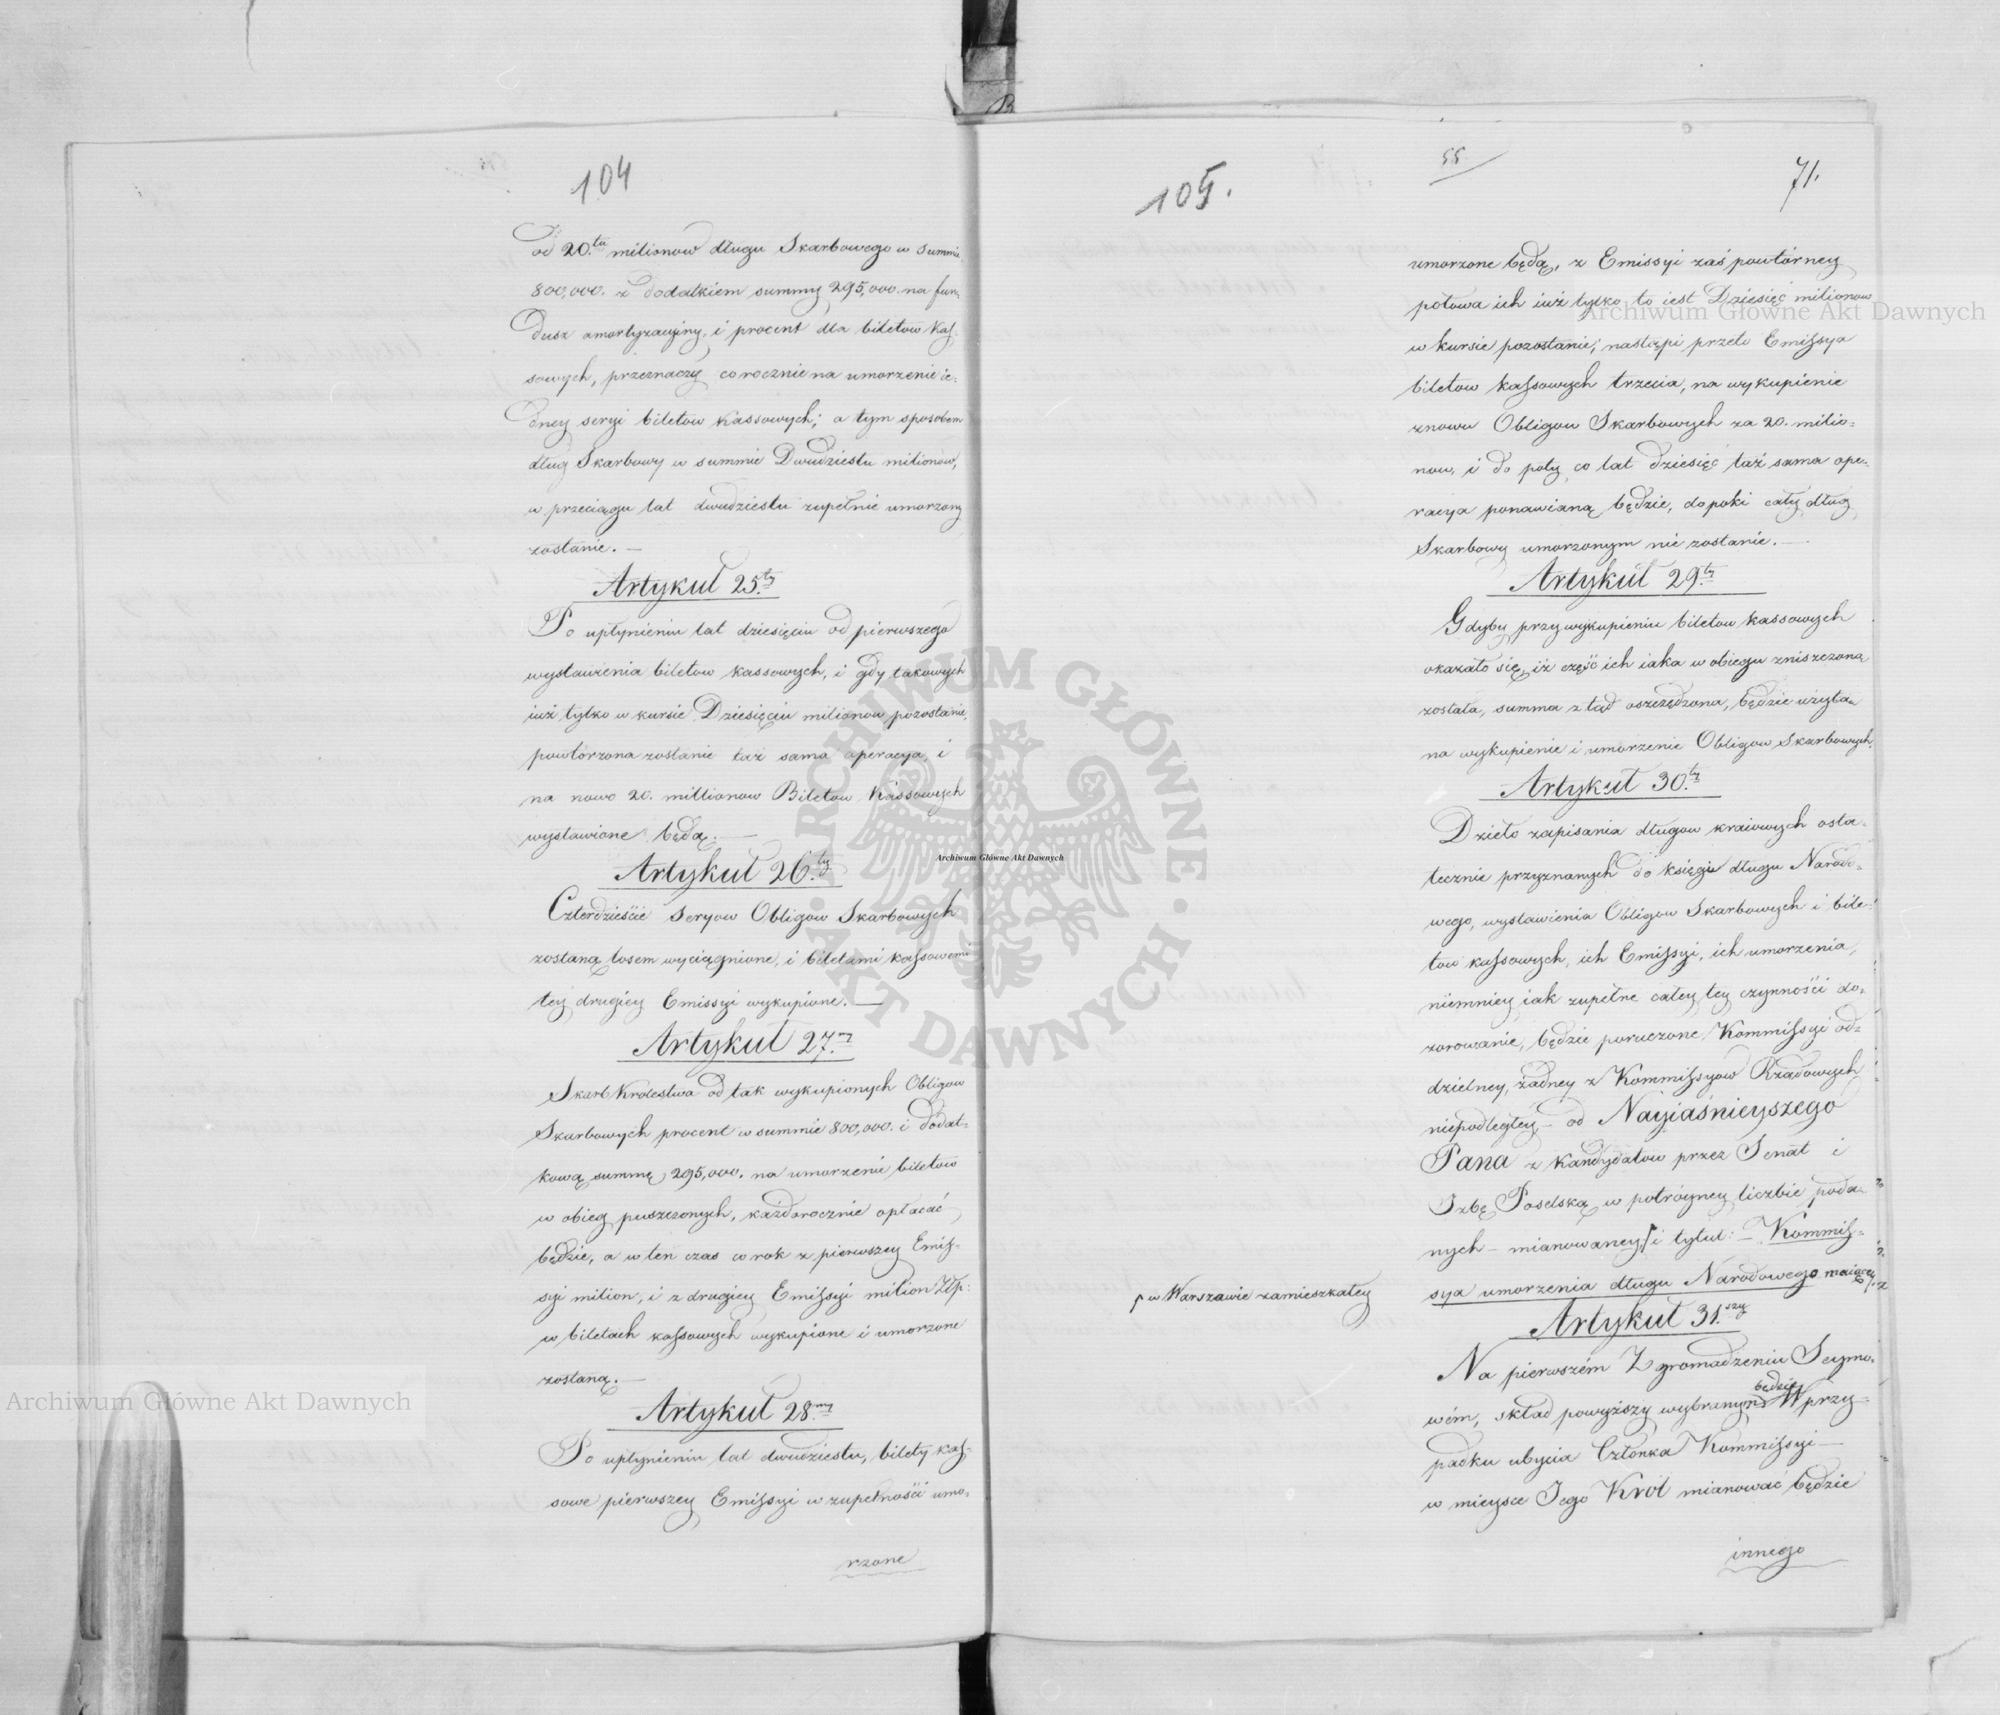 104
od 20.tu milionow długu Skarbowego w summie
800,000. z dodatkiem summy 295,000. na fun-
dusz amortyzacyiny, i procent dla biletow Kas-
sowych, przeznaczy corocznie na umorzenie ie-
dney seryi biletow Kassowych; a tym sposobem
dług Skarbowy w summie Dwudziestu milionow,
w przeciągu lat dwudziestu zupełnie umorzony
zostanie. —
Artykuł 25.ty
Po upłynieniu lat dziesięciu od pierwszego
wystawienia biletow kassowych, i gdy takowych
iuż tylko w kursie Dziesięciu milionow pozostanie,
powtórzona zostanie taż sama operacya, i
na nowo 20. millionow Biletow Kassowych
wystawione będą. —
Artykuł 26.ty
Czterdzieście Seryow Obligow Skarbowych
zostaną losem wyciągnione, i biletami kassowemi
tey drugiey Emissyi wykupione. —
Artykuł 27.my
Skarb Krolestwa od tak wykupionych Obligow
Skarbowych procent w summie 800,000. i dodat-
kową summę 295,000. na umorzenie biletow
w obieg puszczonych, każdorocznie opłacać
będzie, a w ten czas co rok z pierwszey Emis-
syi milion, i z drugiey Emissyi milion Złp:
w biletach kassowych wykupione i umorzone
zostaną. —
Artykuł 28.my
Po upłynieniu lat dwudziestu, bilety kas-
sowe pierwszey Emissyi w zupełności umo-
rzone
105.
55
71.
umorzone będą, z Emissyi zaś powtórney
połowa ich iuż tylko to iest Dziesięć milionow
w kursie pozostanie; nastąpi przeto Emissya
biletow kassowych trzecia, na wykupienie
znowu Obligow Skarbowych za 20. milio-
now, i do poty co lat dziesięć taż sama ope-
racya ponawianą będzie, dopoki cały dług
Skarbowy umorzonym nie zostanie. —
Artykuł 29.ty
Gdyby przy wykupieniu biletow kassowych
okazało się, iż część ich iaka w obiegu zniszczoną
została, summa z tąd oszczędzona, będzie użyta
na wykupienie i umorzenie Obligow Skarbowych.
Artykuł 30.ty
Dzieło zapisania długow kraiowych osta-
tecznie przyznanych do księgi długu Narodo-
wego, wystawienia Obligow Skarbowych i bile-
tow kassowych, ich Emissyi, ich umorzenia,
niemniey iak zupełne całey tey czynności do-
zorowanie, będzie poruczone Kommissyi od-
dzielney, żadney z Kommissyow Rządowych
niepodległey — od Nayiaśnieyszego
Pana z Kandydatow przez Senat i
Izbę Poselską w potróyney liczbie poda-
nych — mianowaney i tytuł: — Kommis-
sya umorzenia długu Narodowego maiącey.
w Warszawie zamieszkałey
Artykuł 31.szy
Na pierwszém Zgromadzeniu Seymo-
wém, skład powyższy wybranym będzie W przy-
padku ubycia Członka Kommissyi —
w mieysce Jego Król mianować będzie
innego
Archiwum Główne Akt Dawnych
Archiwum Główne Akt Dawnych
Archiwum Główne Akt Dawnych
ARCHIWUM GŁÓWNE · AKT DAWNYCH ·